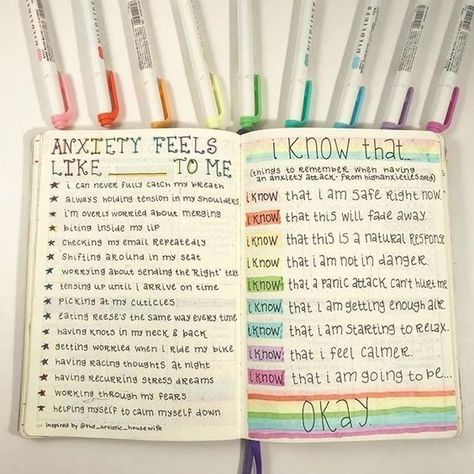 ANXIETY FEELS
LIKE ______ TO ME
i can never fully catch my breath
always holding tension in my shoulders
i'm overly worried about merging
biting inside my lip
checking my email repeatedly
shifting around in my seat
worrying about sending the 'right' text
tensing up until i arrive on time
picking at my cuticles
eating reese's the same way every time
having knots in my neck & back
getting worried when i ride my bike
having racing thoughts at night
having recurring stress dreams
working through my fears
helping myself to calm myself down
inspired by @the_artistic_housewife
i KNOW that...
(things to remember when having
an anxiety attack: from highanxieties.org)
i know that i am safe right now.
i know that this will fade away.
i know that this is a natural response
i know that i am not in danger.
i know that a panic attack can't hurt me
i know that i am getting enough air.
i know that i am starting to relax.
i know that i feel calmer.
i know that i am going to be...
OKAY.